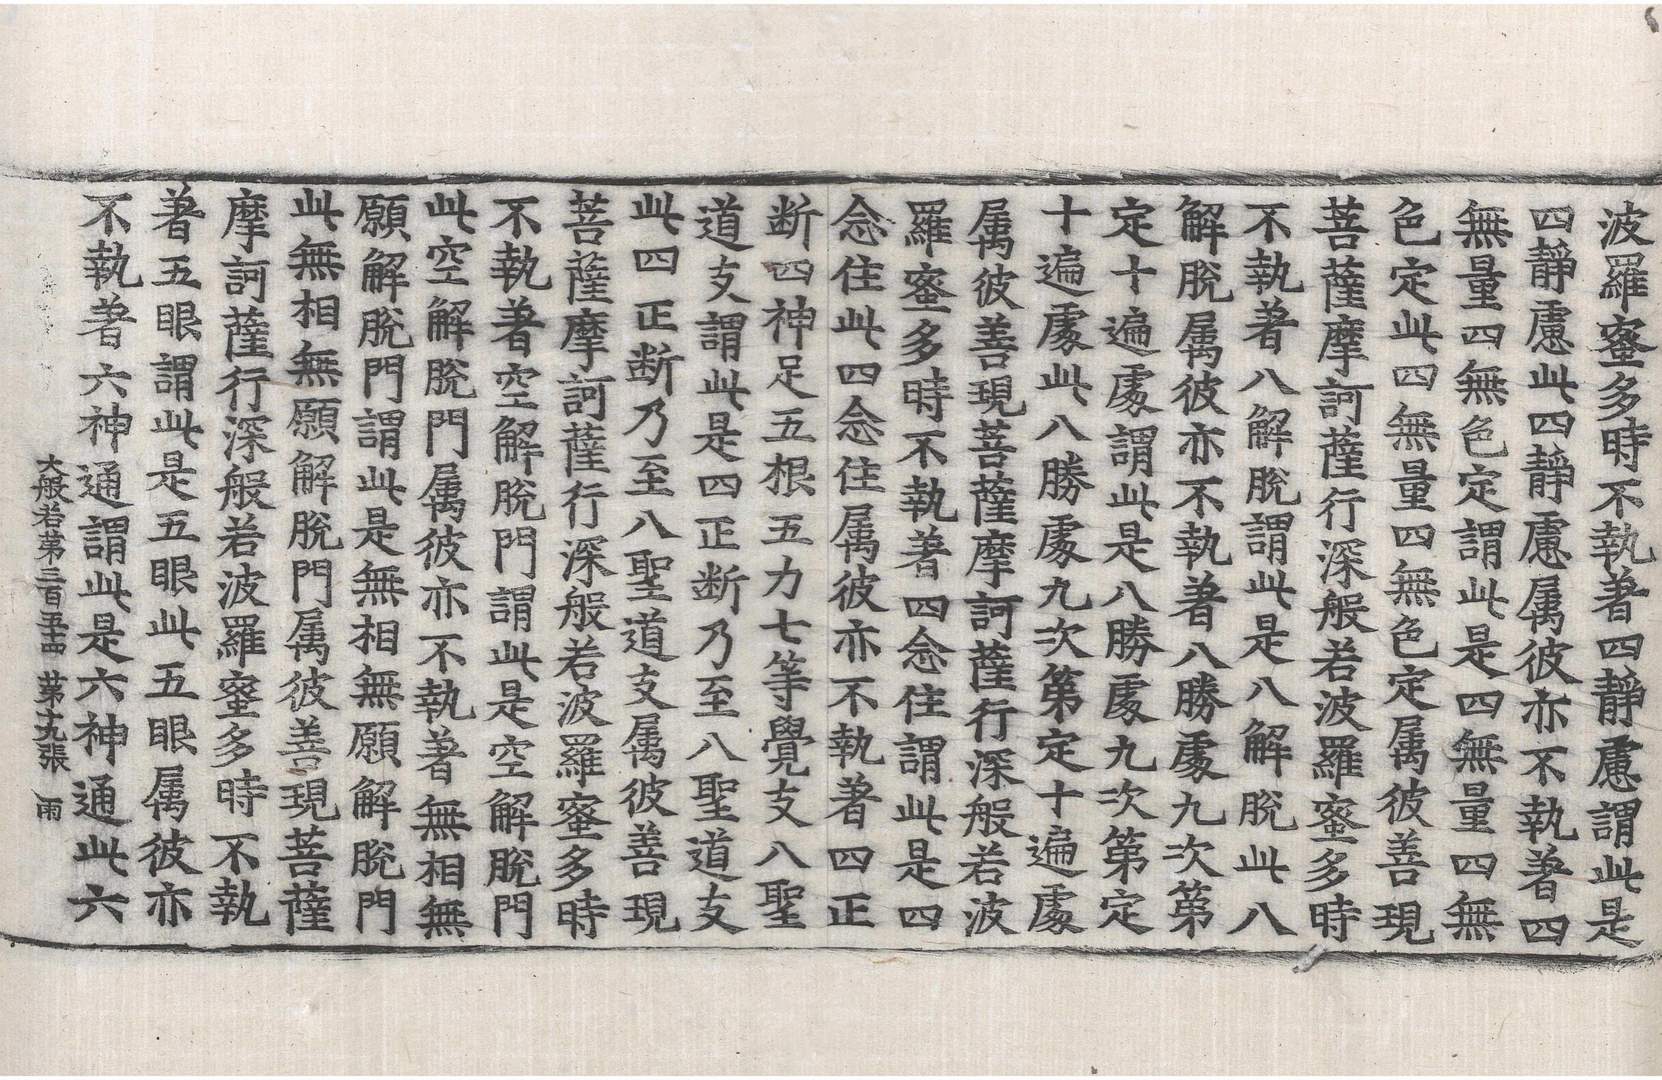 波羅蜜多時不執著四靜慮謂此是
四靜慮此四靜慮属彼亦不執著四
無量四無色定謂此是四無量四無
色定此四無量四無色定属彼善現
菩薩摩訶薩行深般若波羅蜜多時
不執著八解脫謂此是八解脫此八
解脫属彼亦不執著八勝處九次第
定十遍處謂此是八勝處九次第定
十遍處此八勝處九次第定十遍處
属彼善現菩薩摩訶薩行深般若波
羅蜜多時不執著四念住謂此是四
念住此四念住属彼亦不執著四正
断四神足五根五力七等覺支八聖
道支謂此是四正断乃至八聖道支
此四正断乃至八聖道支属彼善現
菩薩摩訶薩行深般若波羅蜜多時
不執著空解脫門謂此是空解脫門
此空解脫門属彼亦不執著無相無
願解脫門謂此是無相無願解脫門
此無相無願解脫門属彼善現菩薩
摩訶薩行深般若波羅蜜多時不執
著五眼謂此是五眼此五眼属彼亦
不執著六神通謂此是六神通此六
大般若第三百五十四 第十九張 雨